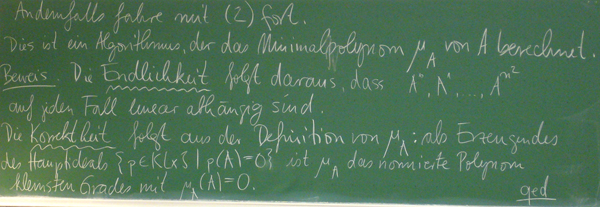 Andernfalls fahre mit (2) fort.
Dies ist ein Algorithmus, der das Minimalpolynom μ_A von A berechnet.
Beweis. Die Endlichkeit folgt daraus, dass A⁰, A¹, ..., A^{n²}
auf jeden Fall linear abhängig sind.
Die Korrektheit folgt aus der Definition von μ_A: als Erzeugendes
des Hauptideals {p∈K[x] | p(A)=0} ist μ_A das normierte Polynom
kleinsten Grades mit μ_A(A)=0.
qed